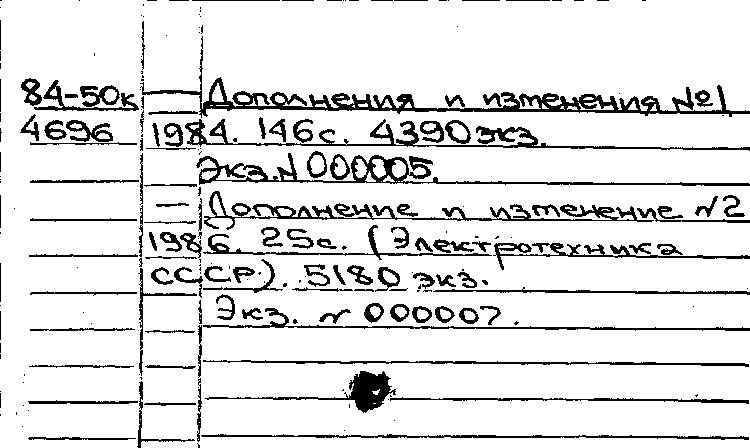 84-50к — Дополнения и изменения №1
4696 1984. 146с. 4390экз.
Экз.N 000005.
— Дополнение и изменение N2
1986. 25с. (Электротехника
СССР). 5180 экз.
Экз. N 000007.